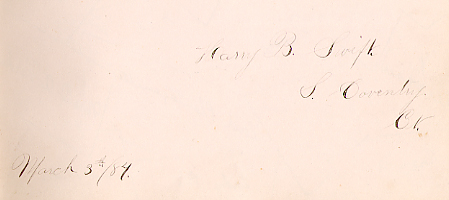 Harry B. Swift.
S. Coventry.
Ct.
March 3rd/84.